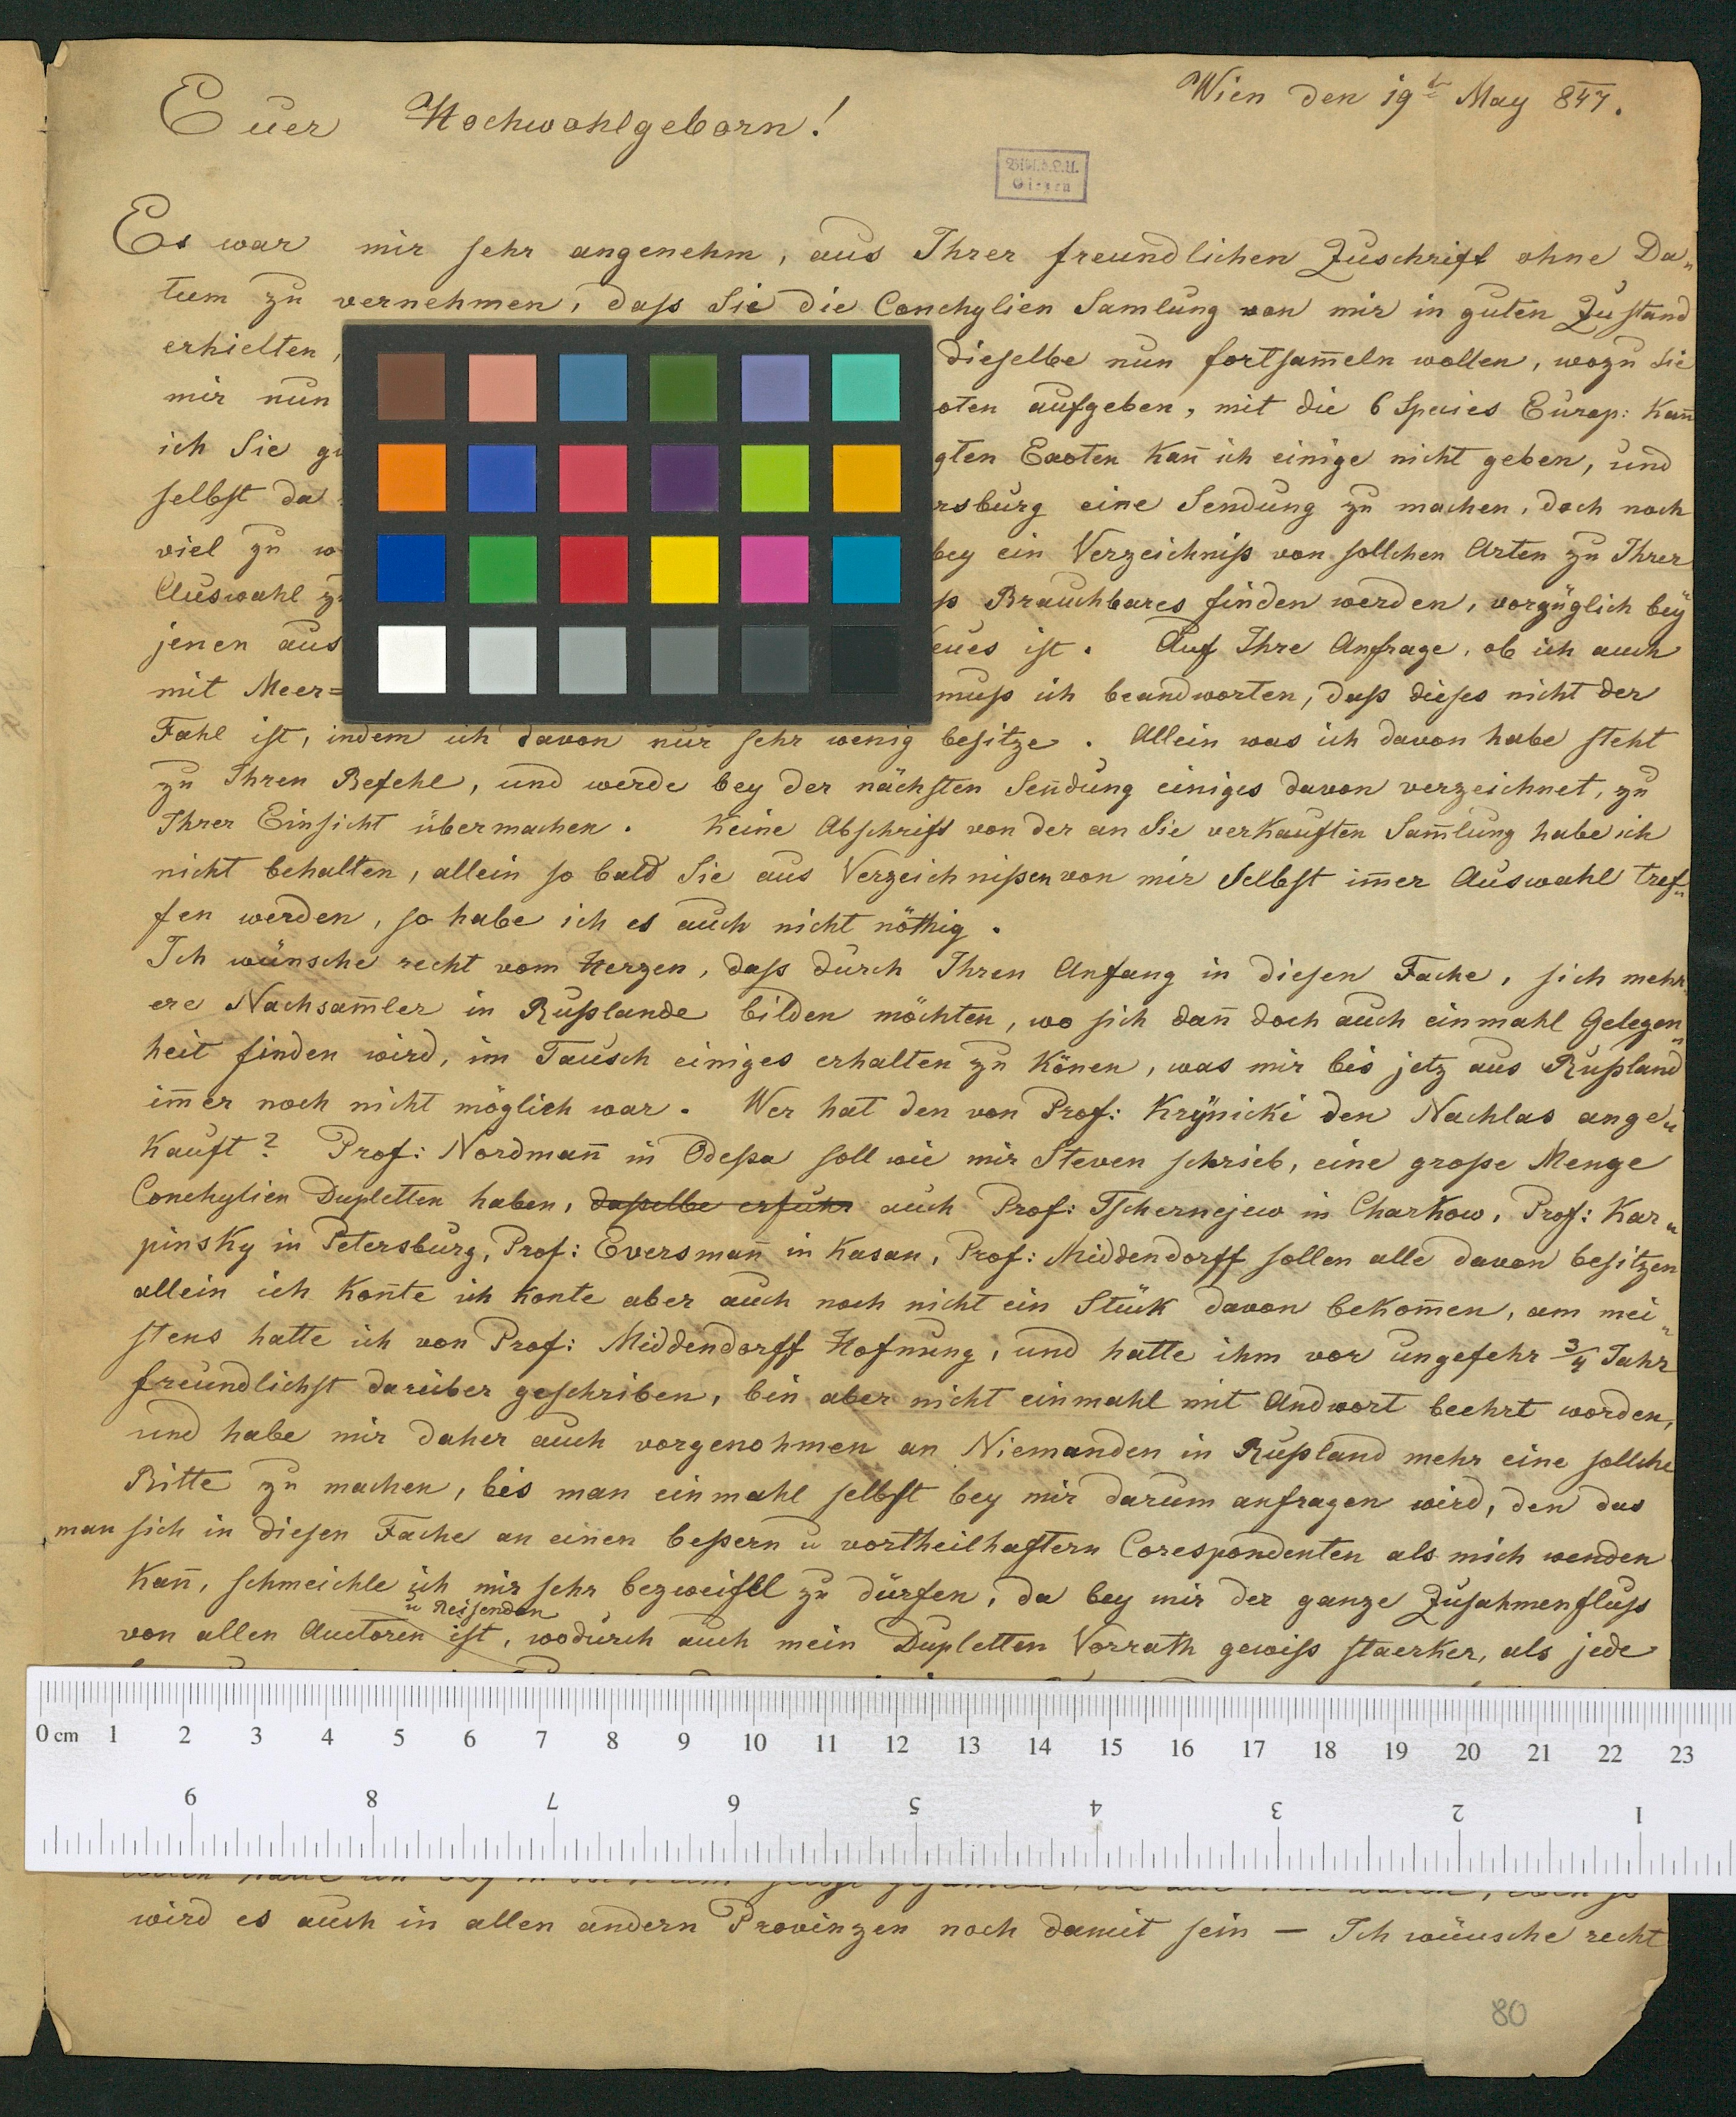 Wien den 19t May 847.
Euer Hochwohlgeborn!
Bibl. d. L. U.
Giezen
Es war mir sehr angenehm, aus Ihrer freundlichen Zuschrift ohne Da„
tum zu vernehmen, dass Sie die Conchylien Samlung von mir in guten Zustand
erhielten, dieselbe nun fortsam̄eln wollen, wozu Sie
mir nun oten aufgeben, mit die 6 Species Europ: kan̄
ich Sie gten Exoten kan̄ ich einige nicht geben, und
selbst da rsburg eine Sendung zu machen, doch noch
viel zu bey ein Verzeichniß von sollchen Arten zu Ihrer
Auswahl Brauchbares finden werden, vorzüglich beÿ
jenen aus eues ist. Auf Ihre Anfrage, ob ich auch
mit Meer= muß ich beandworten, daß dieses nicht der
Fahl ist, indem ich davon nur sehr wenig besitze. Allein was ich davon habe steht
zu Ihren Befehl, und werde bey der nächsten Sen̄dung einiges davon verzeichnet, zu
Ihrer Einsicht übermachen. Keine Abschrift von der an Sie verkauften Sam̄lung habe ich
nicht behalten, allein so bald Sie aus Verzeichnißen von mir Selbst im̄er Auswahl tref„
fen werden, so habe ich es auch nicht nöthig.
Ich wünsche recht vom Herzen, dass durch Ihren Anfang in diesen Fache, sich mehr„
ere Nachsam̄ler in Rußlande bilden möchten, wo sich dan̄ doch auch einmahl Gelegen„
heit finden wird, im Tausch einiges erhalten zu könen, was mir bis jetz aus Rußland
im̄er noch nicht möglich war. Wer hat den von Prof: Krÿnicki den Nachlas ange„
kauft? Prof: Nordman̄ in Odeßa soll wie mir Steven schrieb, eine große Menge
Conchylien Dupletten haben, daßelbe erfuhr auch Prof: Tschernejew in Charkow, Prof: Kar„
pinsky in Petersburg, Prof: Eversman̄ in Kasan, Prof: Middendorff sollen alle davon besitzen
allein ich kon̄te ich konte aber auch noch nicht ein Stück davon bekom̄en, am mei„
stens hatte ich von Prof: Middendorff Hofnung, und hatte ihm vor ungefehr 3/4 Jahr
freundlichst darüber geschriben, bin aber nicht einmahl mit Andwort beehrt worden,
und habe mir daher auch vorgenohmen an Niemanden in Rußland mehr eine sollche
Bitte zu machen, bis man einmahl selbst bey mir darum anfragen wird, den das
man sich in diesen Fache an einen beßern u vortheilhaftern Corespondenten als mich wenden
kan̄, schmeichle ich mir sehr bezweifell zu dürfen, da bey mir der ganze Zusahmenfluss
u Reisenden
von allen Auctoren ist, wodurch auch mein Dupletten Vorrath gewiss staerker, als jede
0 cm 1 2 3 4 5 6 7 8 9 10 11 12 13 14 15 16 17 18 19 20 21 22 23
9 8 7 6 5 4 3 2 1
wird es auch in allen andern Provinzen noch damit sein — Ich wünsche recht
80